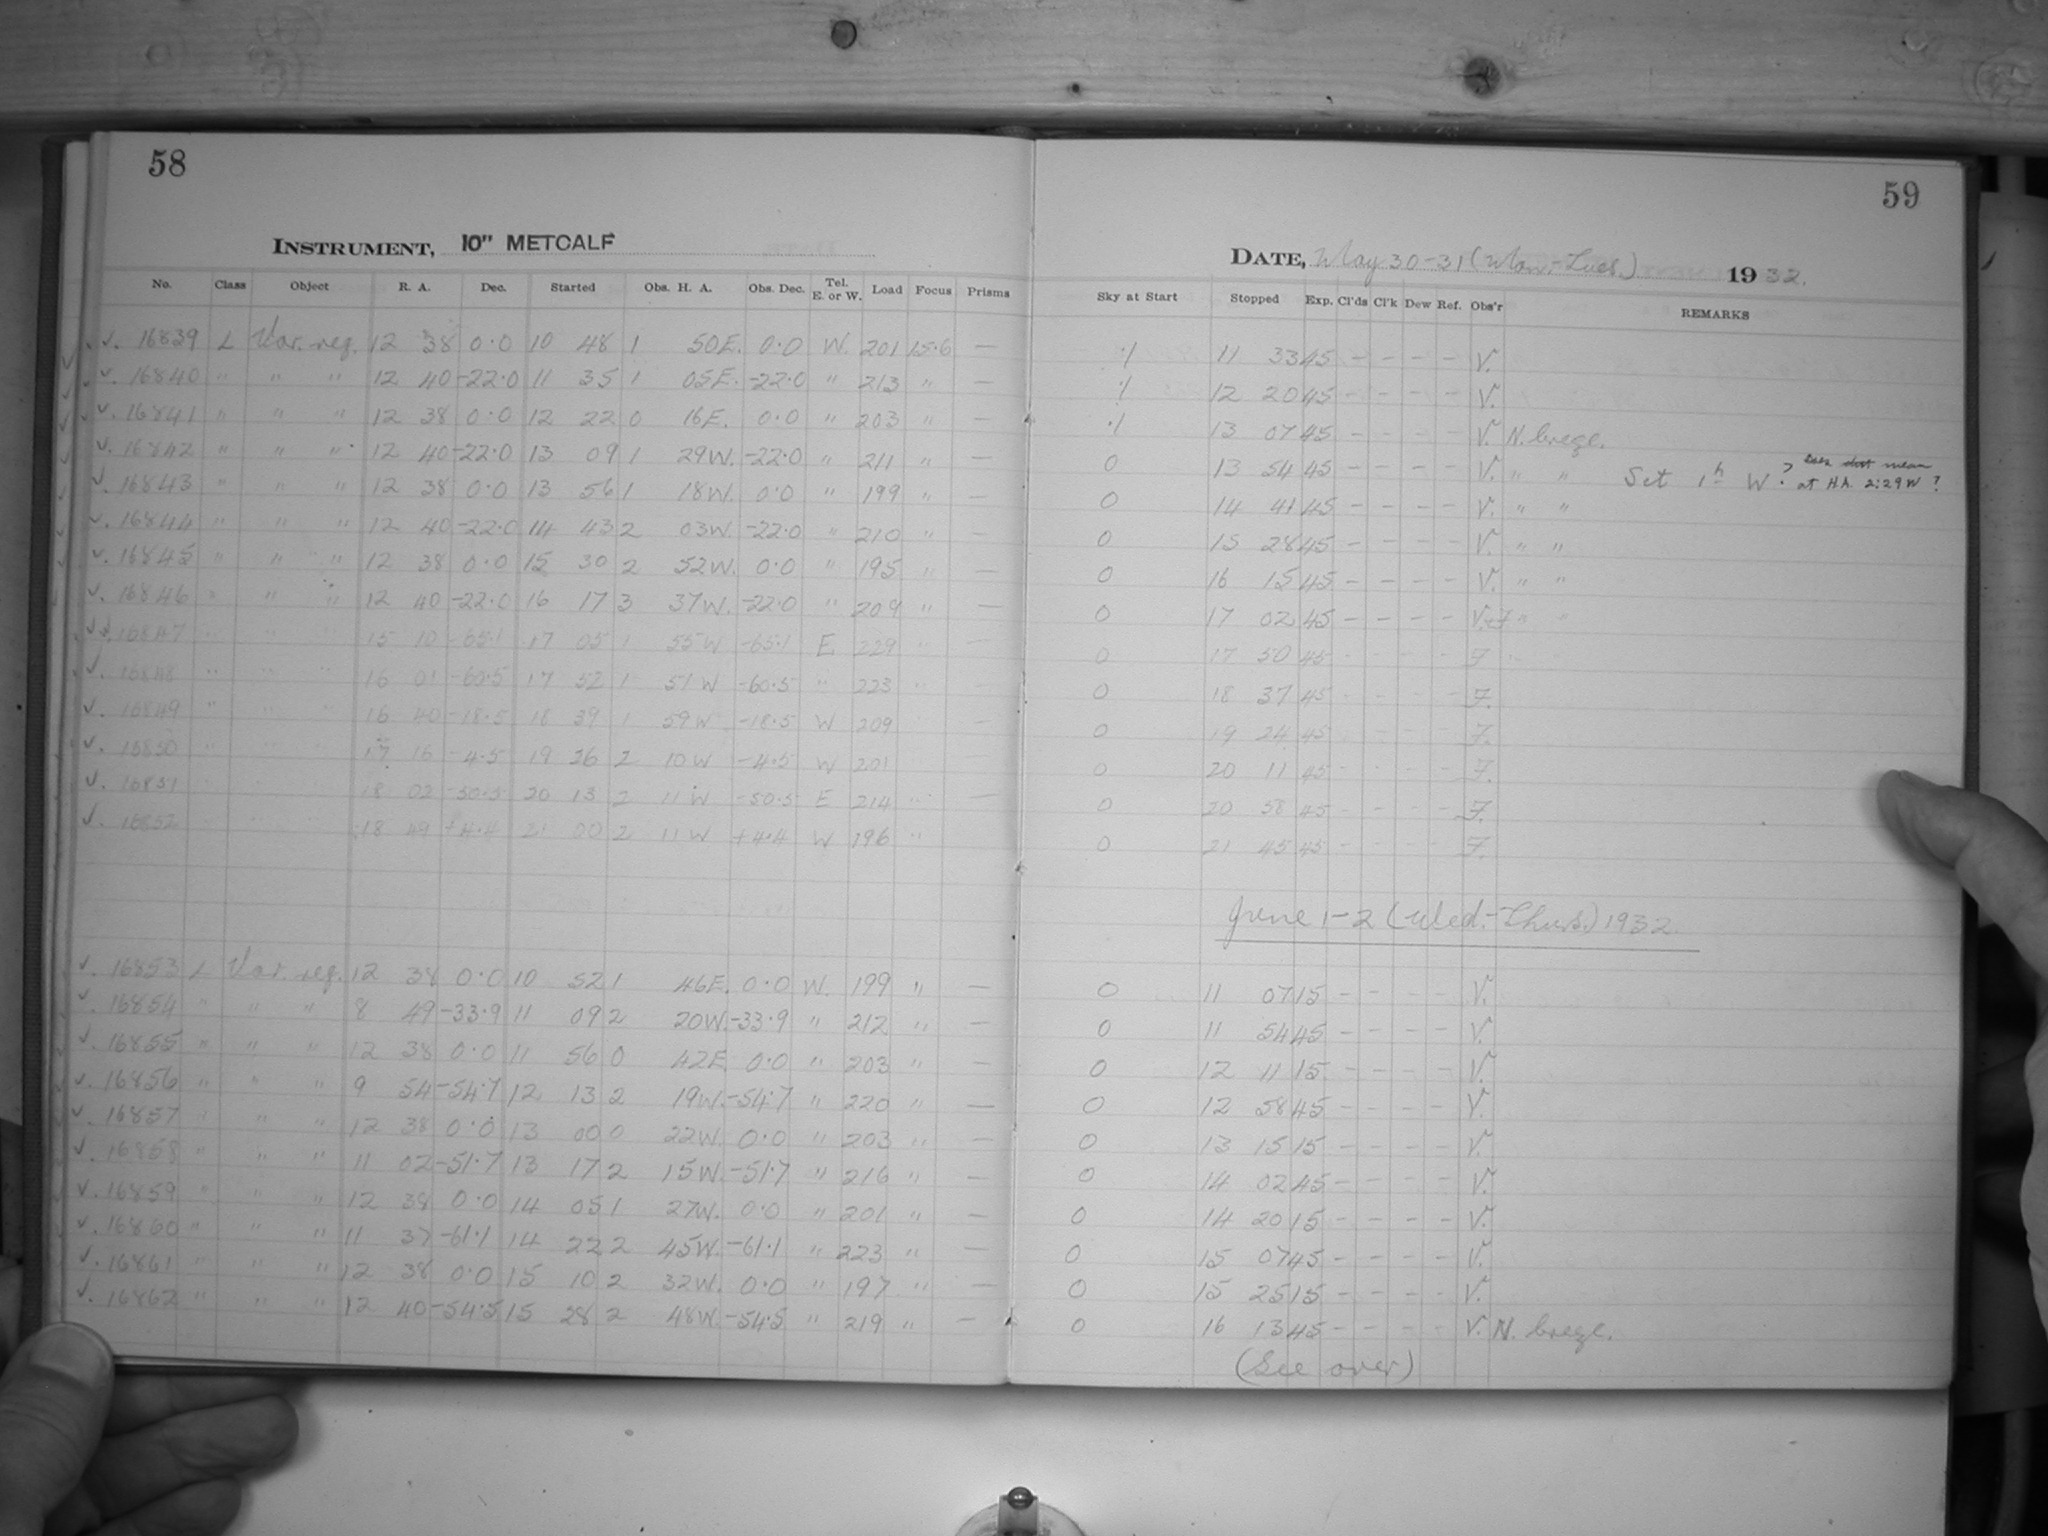 58
INSTRUMENT, 10" METCALF
No. Class Object R. A. Dec. Started Obs. H. A. Obs. Dec. Tel. E. or W. Load Focus Prisms
✓. 16839 L Var. reg. 12 38 0·0 10 48 1 50E. 0·0 W. 201 15·6 —
✓. 16840 " " " 12 40 -22·0 11 35 1 05E. -22·0 " 213 " —
✓. 16841 " " " 12 38 0·0 12 22 0 16E. 0·0 " 203 " —
✓. 16842 " " " 12 40 -22·0 13 09 1 29W. -22·0 " 211 " —
✓. 16843 " " " 12 38 0·0 13 56 1 18W. 0·0 " 199 " —
✓. 16844 " " " 12 40 -22·0 14 43 2 03W. -22·0 " 210 " —
✓. 16845 " " " 12 38 0·0 15 30 2 52W. 0·0 " 195 " —
✓. 16846 " " " 12 40 -22·0 16 17 3 37W. -22·0 " 209 " —
✓. 16847 " " " 15 10 -65·1 17 05 1 55W -65·1 E 229 " —
✓. 16848 " " " 16 01 -60·5 17 52 1 51W -60·5 " 223 " —
✓. 16849 " " " 16 40 -18·5 18 39 1 59W -18·5 W 209 —
✓. 16850 " " " 17 16 -4·5 19 26 2 10W -4·5 W 201 —
✓. 16851 18 02 -50·5 20 13 2 11W -50·5 E 214 " —
✓. 16852 18 49 +4·4 21 00 2 11W +4·4 W 196 "
✓. 16853 L Var. reg. 12 38 0·0 10 52 1 46E. 0·0 W. 199 " —
✓. 16854 " " " 8 49 -33·9 11 09 2 20W. -33·9 " 212 " —
✓. 16855 " " " 12 38 0·0 11 56 0 42E 0·0 " 203 " —
✓. 16856 " " " 9 54 -54·7 12 13 2 19W. -54·7 " 220 " —
✓. 16857 " " " 12 38 0·0 13 00 0 22W. 0·0 " 203 " —
✓. 16858 " " " 11 02 -51·7 13 17 2 15W. -51·7 " 216 " —
✓. 16859 " " " 12 38 0·0 14 05 1 27W. 0·0 " 201 " —
✓. 16860 " " " 11 37 -61·1 14 22 2 45W. -61·1 " 223 " —
✓. 16861 " " " 12 38 0·0 15 10 2 32W. 0·0 " 197 " —
✓. 16862 " " " 12 40 -54·5 15 28 2 48W. -54·5 " 219 " —
59
DATE, May 30-31 (Mon.-Tues.) 1932.
Sky at Start Stopped Exp. Cl'ds Cl'k Dew Ref. Obs'r REMARKS
11 33 45 – – – – V.
12 20 45 – – – – V.
13 07 45 – – – – V. N. breeze.
0 13 54 45 – – – – V. " " Set 1h W. ? mean at H.A. 2:29W ?
0 14 41 45 – – – – V. " "
0 15 28 45 – – – – V. " "
0 16 15 45 – – – – V. " "
0 17 02 45 – – – – V.+F " "
0 17 50 45 – – – – F
0 18 37 45 – – – – F.
0 19 24 45 – – – – F.
0 20 11 45 – – – – F.
0 20 58 45 – – – – F.
0 21 45 45 – – – – F.
June 1-2 (Wed.-Thurs.) 1932.
0 11 07 15 – – – – V.
0 11 54 45 – – – – V.
0 12 11 15 – – – – V.
0 12 58 45 – – – – V.
0 13 15 15 – – – – V.
0 14 02 45 – – – – V.
0 14 20 15 – – – – V.
0 15 07 45 – – – – V.
0 15 25 15 – – – – V.
0 16 13 45 – – – – V. N. breeze.
(See over)